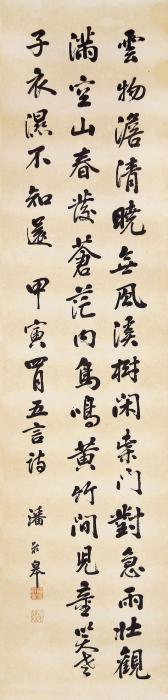 雲物澹清曉無風溪樹閑柴門對急雨壯觀
滿空山春發蒼茫內鳥鳴黃竹間兒童笑老
子衣濕不知還 甲寅四月五言詩 潘齡皋